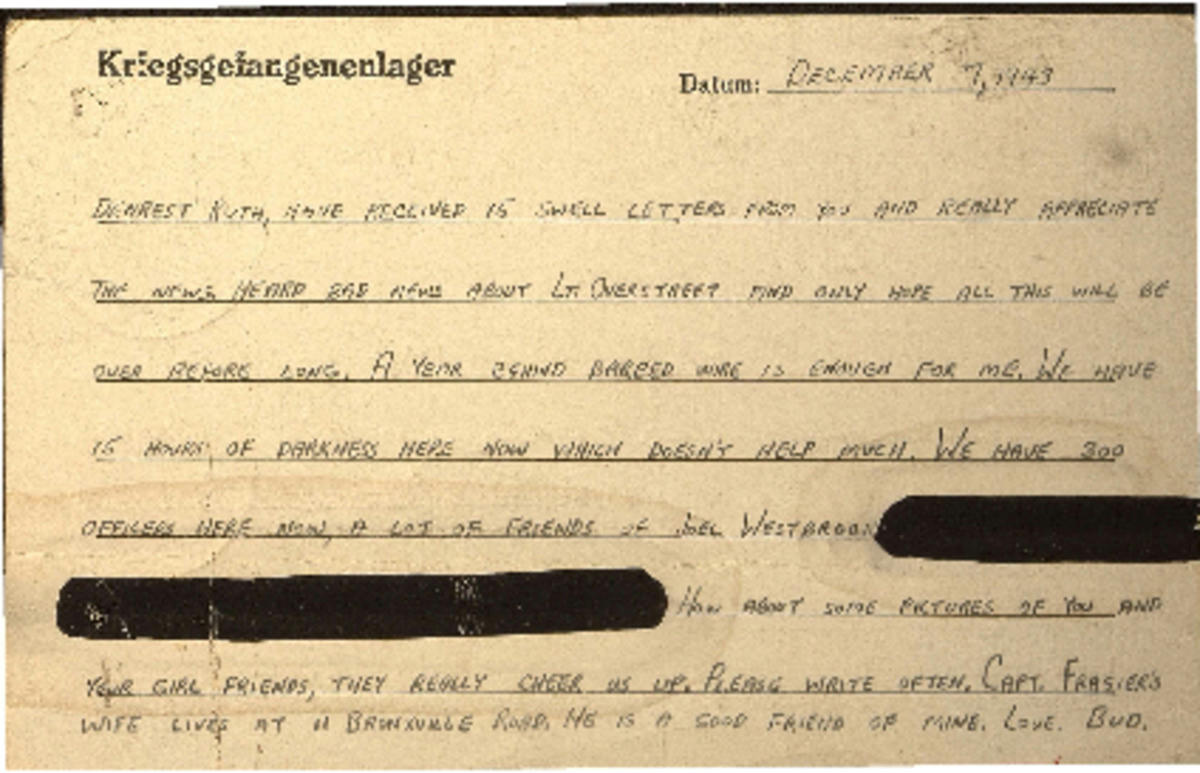 Kriegsgefangenenlager
Datum: DECEMBER 7, 1943
DEAREST RUTH, HAVE RECEIVED 15 SWELL LETTERS FROM YOU AND REALLY APPRECIATE
THE NEWS. HEARD BAD NEWS ABOUT LT. OVERSTREET AND ONLY HOPE ALL THIS WILL BE
OVER BEFORE LONG. A YEAR BEHIND BARBED WIRE IS ENOUGH FOR ME. WE HAVE
15 HOURS OF DARKNESS HERE NOW WHICH DOESN'T HELP MUCH. WE HAVE 300
OFFICERS HERE NOW, A LOT OF FRIENDS OF JOEL WESTBROOK
HOW ABOUT SOME PICTURES OF YOU AND
YOUR GIRL FRIENDS, THEY REALLY CHEER US UP. PLEASE WRITE OFTEN. CAPT. FRASIER'S
WIFE LIVES AT 11 BRONXVILLE ROAD. HE IS A GOOD FRIEND OF MINE. LOVE. BUD.